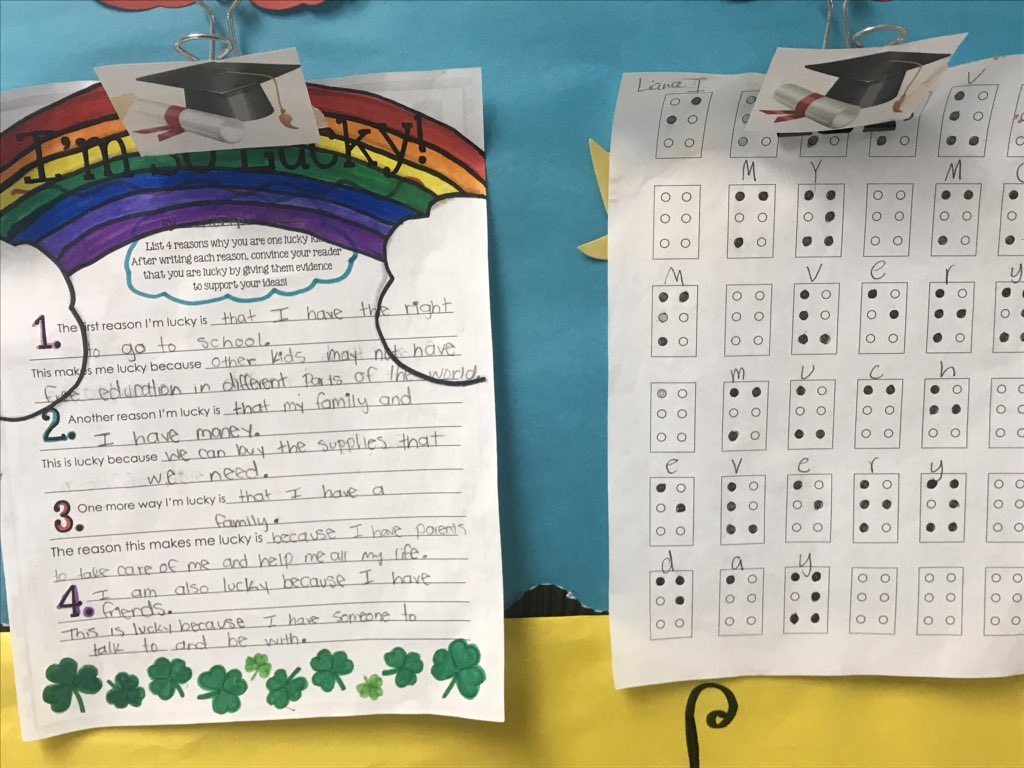 I'm So Lucky!
List 4 reasons why you are one lucky
After writing each reason, convince your reader
that you are lucky by giving them evidence
to support your ideas!
1. The first reason I'm lucky is that I have the right
to go to school.
This makes me lucky because other kids may not have
free education in different parts of the world.
2. Another reason I'm lucky is that my family and
I have money.
This is lucky because we can buy the supplies that
we need.
3. One more way I'm lucky is that I have a
family.
The reason this makes me lucky is because I have parents
to take care of me and help me all my life.
4. I am also lucky because I have
friends.
This is lucky because I have someone to
talk to and be with.
Liana I
V
M Y M
M V e r y
m u c h
e v e r y
d a y